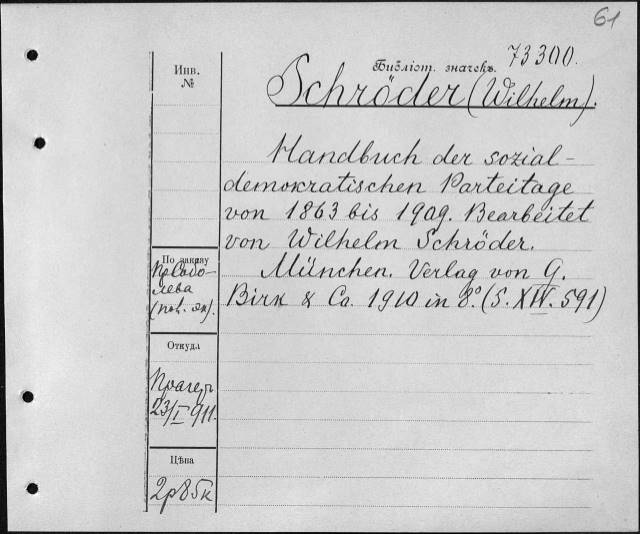 61
Инв.
№
Библіот. значекъ. 73300.
Schröder (Wilhelm).
Handbuch der sozial-
demokratischen Parteitage
von 1863 bis 1909. Bearbeitet
von Wilhelm Schröder.
München. Verlag von G.
Birk & Co. 1910 in 8.° (S. XIV. 591)
По заказу
лева
Откуда
Прагеръ
23/I 911.
Цѣна
2р85к